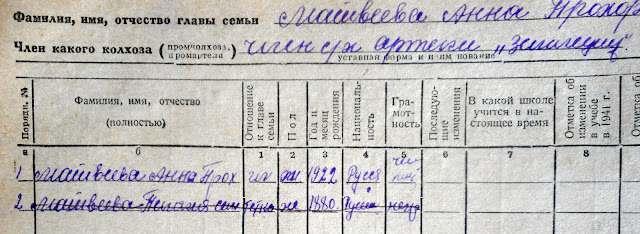 Фамилия, имя, отчество главы семьи Матвеева Анна Прохор
Член какого колхоза (промколхоза, промартели) член с/х артели
уставная форма и наименование
Порядк. № Фамилия, имя, отчество (полностью) Отношение к главе семьи Пол Год и месяц рождения Националь-ность Гра-мот-ность Последую-щие изменения В какой школе учится в на-стоящее время Отметка об изменении в учебе в 1941 г. Отметка об
а б 1 2 3 4 5 6 7 8
1 Матвеева Анна Прох ж 1922 Русск
2 Матвеева ж 1880 негр